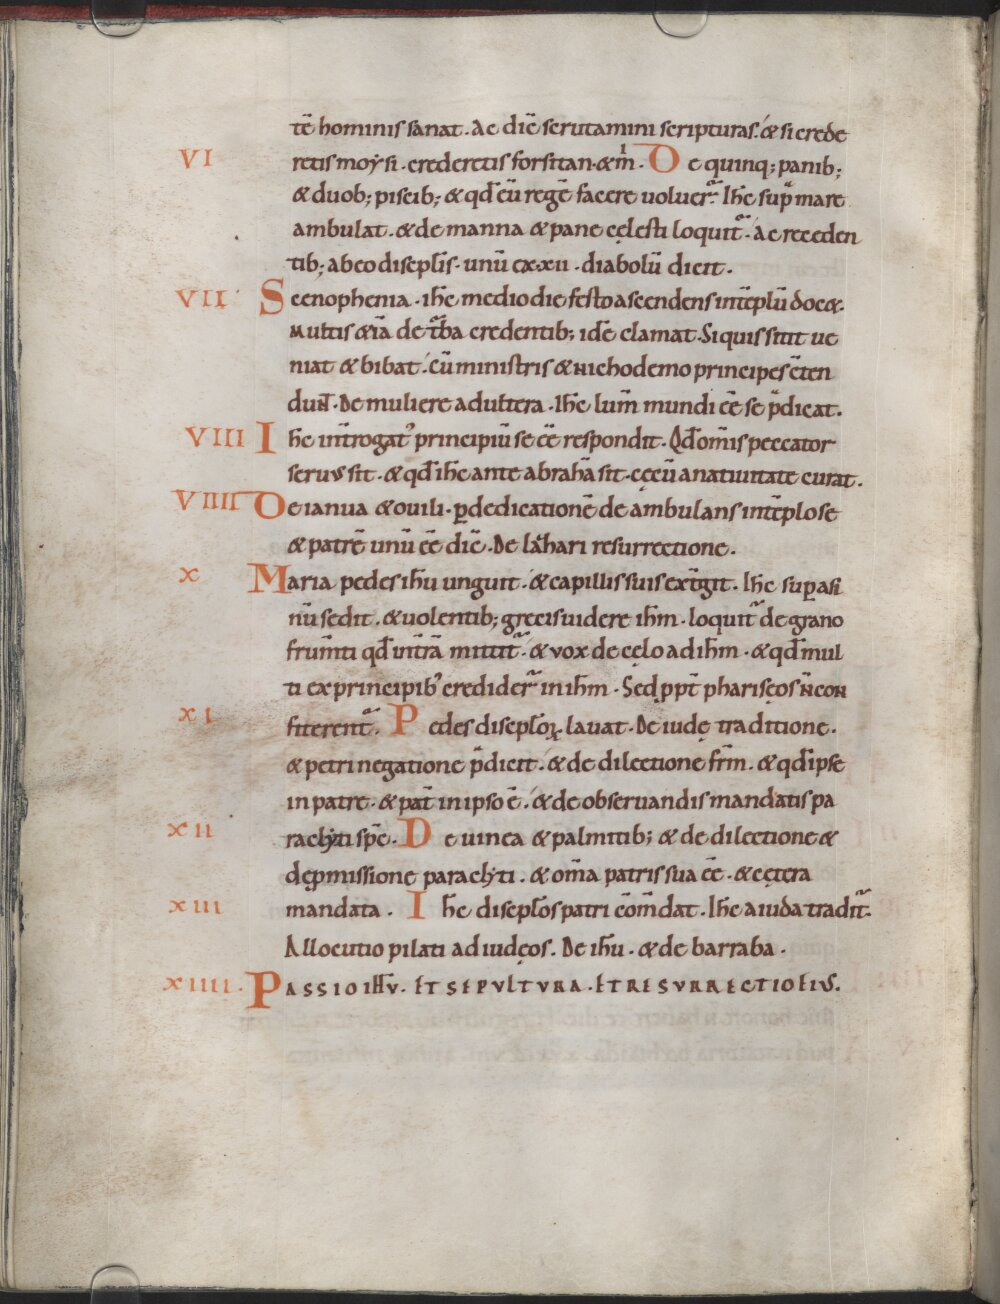 tē hominis sanat. Ac dic̄ scrutamini scripturas. & si crede
VI retis moysi. crederetis forsitan & m̄. De quinq; panib;
& duob; piscib; & qđ eū regē facere uoluer̄. Ihc̄ sup̄ mare
ambulat. & de manna & pane cęlesti loquit̄. Ac receden
tib; ab eo discipl̄is. unū ex xii. diabolū dicit.
VII Scenophenia. ihc̄ mediodie festo ascendens in tēplū doc&.
Multis &iā de tͣba credentib; idē clamat. Si quis sitit ue
niat & bibat. Cū ministris & nichodemo principes cōten
dun̄t. De muliere adultera. Ihc̄ lum̄ mundi ēe se p̄dicat.
VIII Ihc̄ int̄rogat᾽ principiū se ēe respondit. Qđ om̄is peccator
seruus sit. & qđ ihc̄ ante abrahā sit. cęcū a natiuitate curat.
VIIII De ianua & ouili. ꝑ dedicationē deambulans in tēplo se
& patrē unū ēe dic̄. De lazhari resurrectione.
X Maria pedes ihū unguit. & capillis suis ext̄git. Ihc̄ suꝑ asi
nū sedit. & uolentib; grecis uidere ihm̄. loquit̄ de grano
frum̄ti qđ in t̄rā mittit̄. & vox de cęlo ad ihm̄. & qđ mul
ti ex principib᾽ credider̄ in ihm̄. Sed ppt̄ pharisęos n̄ con
XI fiterent̄. Pedes discipl̄oꝝ lauat. De iudę traditione.
& petri negatione p̄dicit. & de dilectione frm̄. & qđ ipse
in patre. & pat̄ in ipso ē. & de obseruandis mandatis pa
XII raclyti sp̄c. De uinea & palmitib; & de dilectione &
de ꝓmissione paraclyti. & om̄a patris sua ēe. & cętera
XIII mandata. Ihc̄ discipl̄os patri cōm̄dat. Ihc̄ a iuda tradit̄.
Allocutio pilati ad iudęos. De ihū. & de barraba.
XIIII. PASSIO IHŪ. ET SEPVLTVRA. ET RESVRRECTIO EIVS.